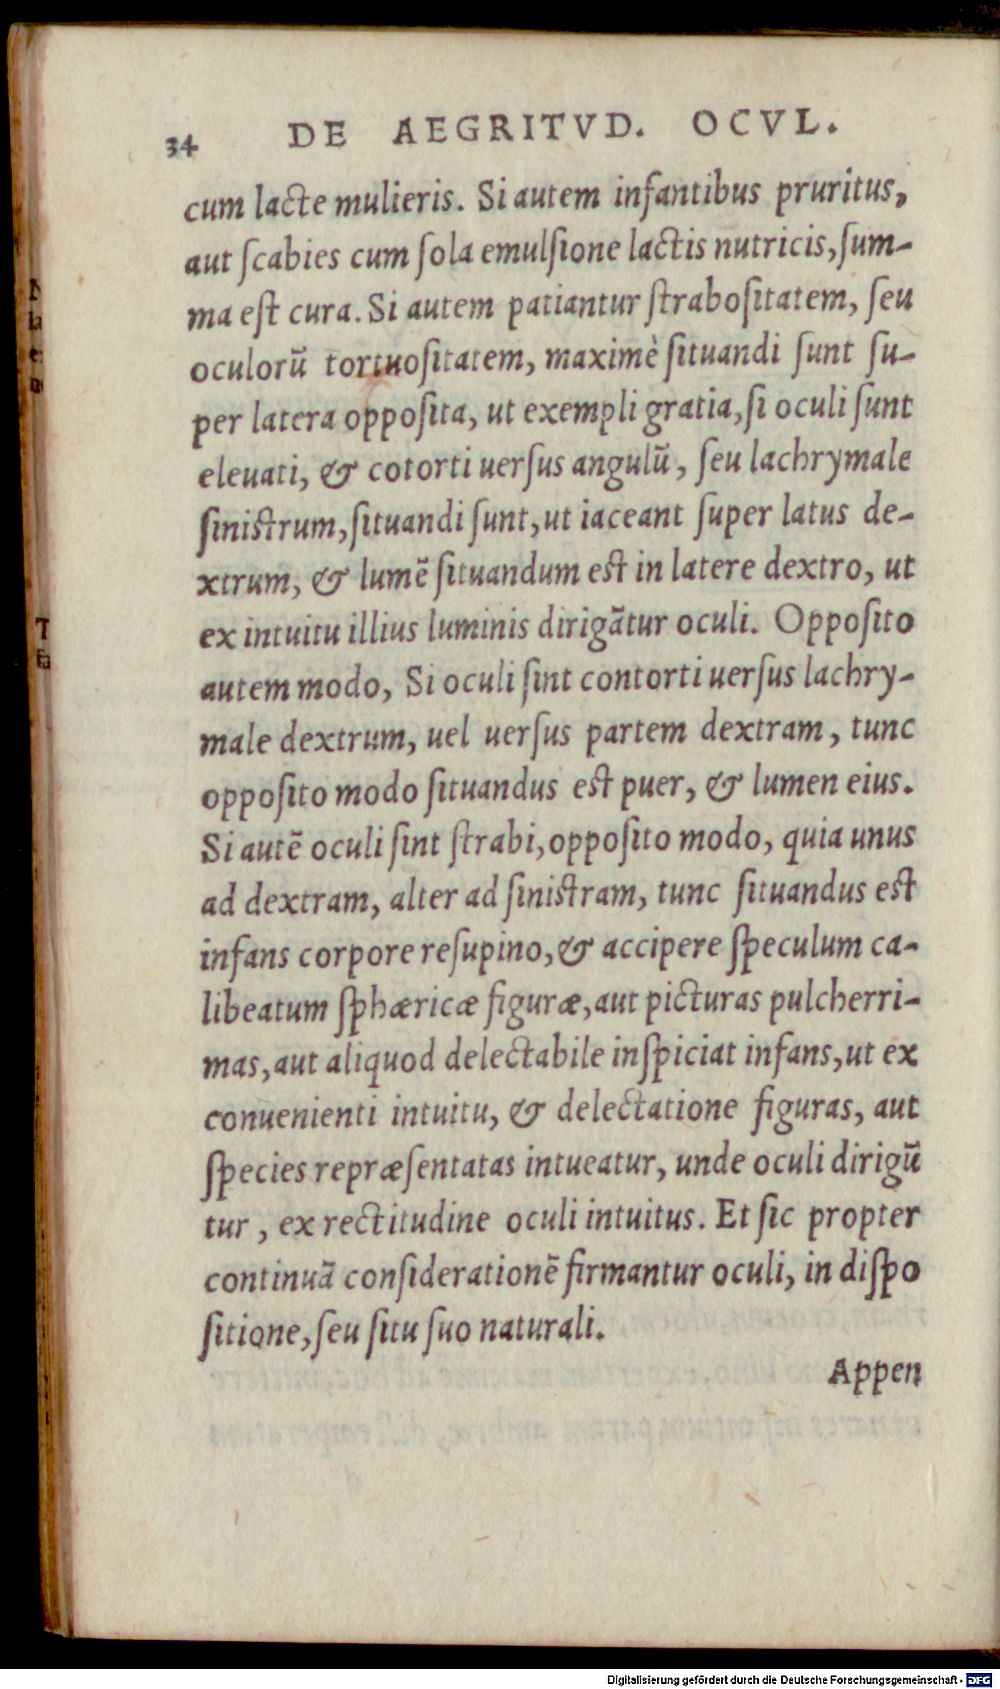 34 DE AEGRITVD. OCVL.
cum lacte mulieris. Si autem infantibus pruritus,
aut ſcabies cum ſola emulſione lactis nutricis, ſum-
ma eſt cura. Si autem patiantur ſtraboſitatem, ſeu
oculorū tortuoſitatem, maximè ſituandi ſunt ſu-
per latera oppoſita, ut exempli gratia, ſi oculi ſunt
eleuati, & cotorti uerſus angulū, ſeu lachrymale
ſiniſtrum, ſituandi ſunt, ut iaceant ſuper latus de-
xtrum, & lumē ſituandum eſt in latere dextro, ut
ex intuitu illius luminis dirigātur oculi. Oppoſito
autem modo, Si oculi ſint contorti uerſus lachry-
male dextrum, uel uerſus partem dextram, tunc
oppoſito modo ſituandus eſt puer, & lumen eius.
Si autē oculi ſint ſtrabi, oppoſito modo, quia unus
ad dextram, alter ad ſiniſtram, tunc ſituandus eſt
infans corpore reſupino, & accipere ſpeculum ca-
libeatum ſphæricæ figuræ, aut picturas pulcherri-
mas, aut aliquod delectabile inſpiciat infans, ut ex
conuenienti intuitu, & delectatione figuras, aut
ſpecies repræſentatas intueatur, unde oculi dirigū
tur, ex rectitudine oculi intuitus. Et ſic propter
continuā conſiderationē firmantur oculi, in diſpo
ſitione, ſeu ſitu ſuo naturali.
Appen
Digitalisierung gefördert durch die Deutsche Forschungsgemeinschaft - DFG